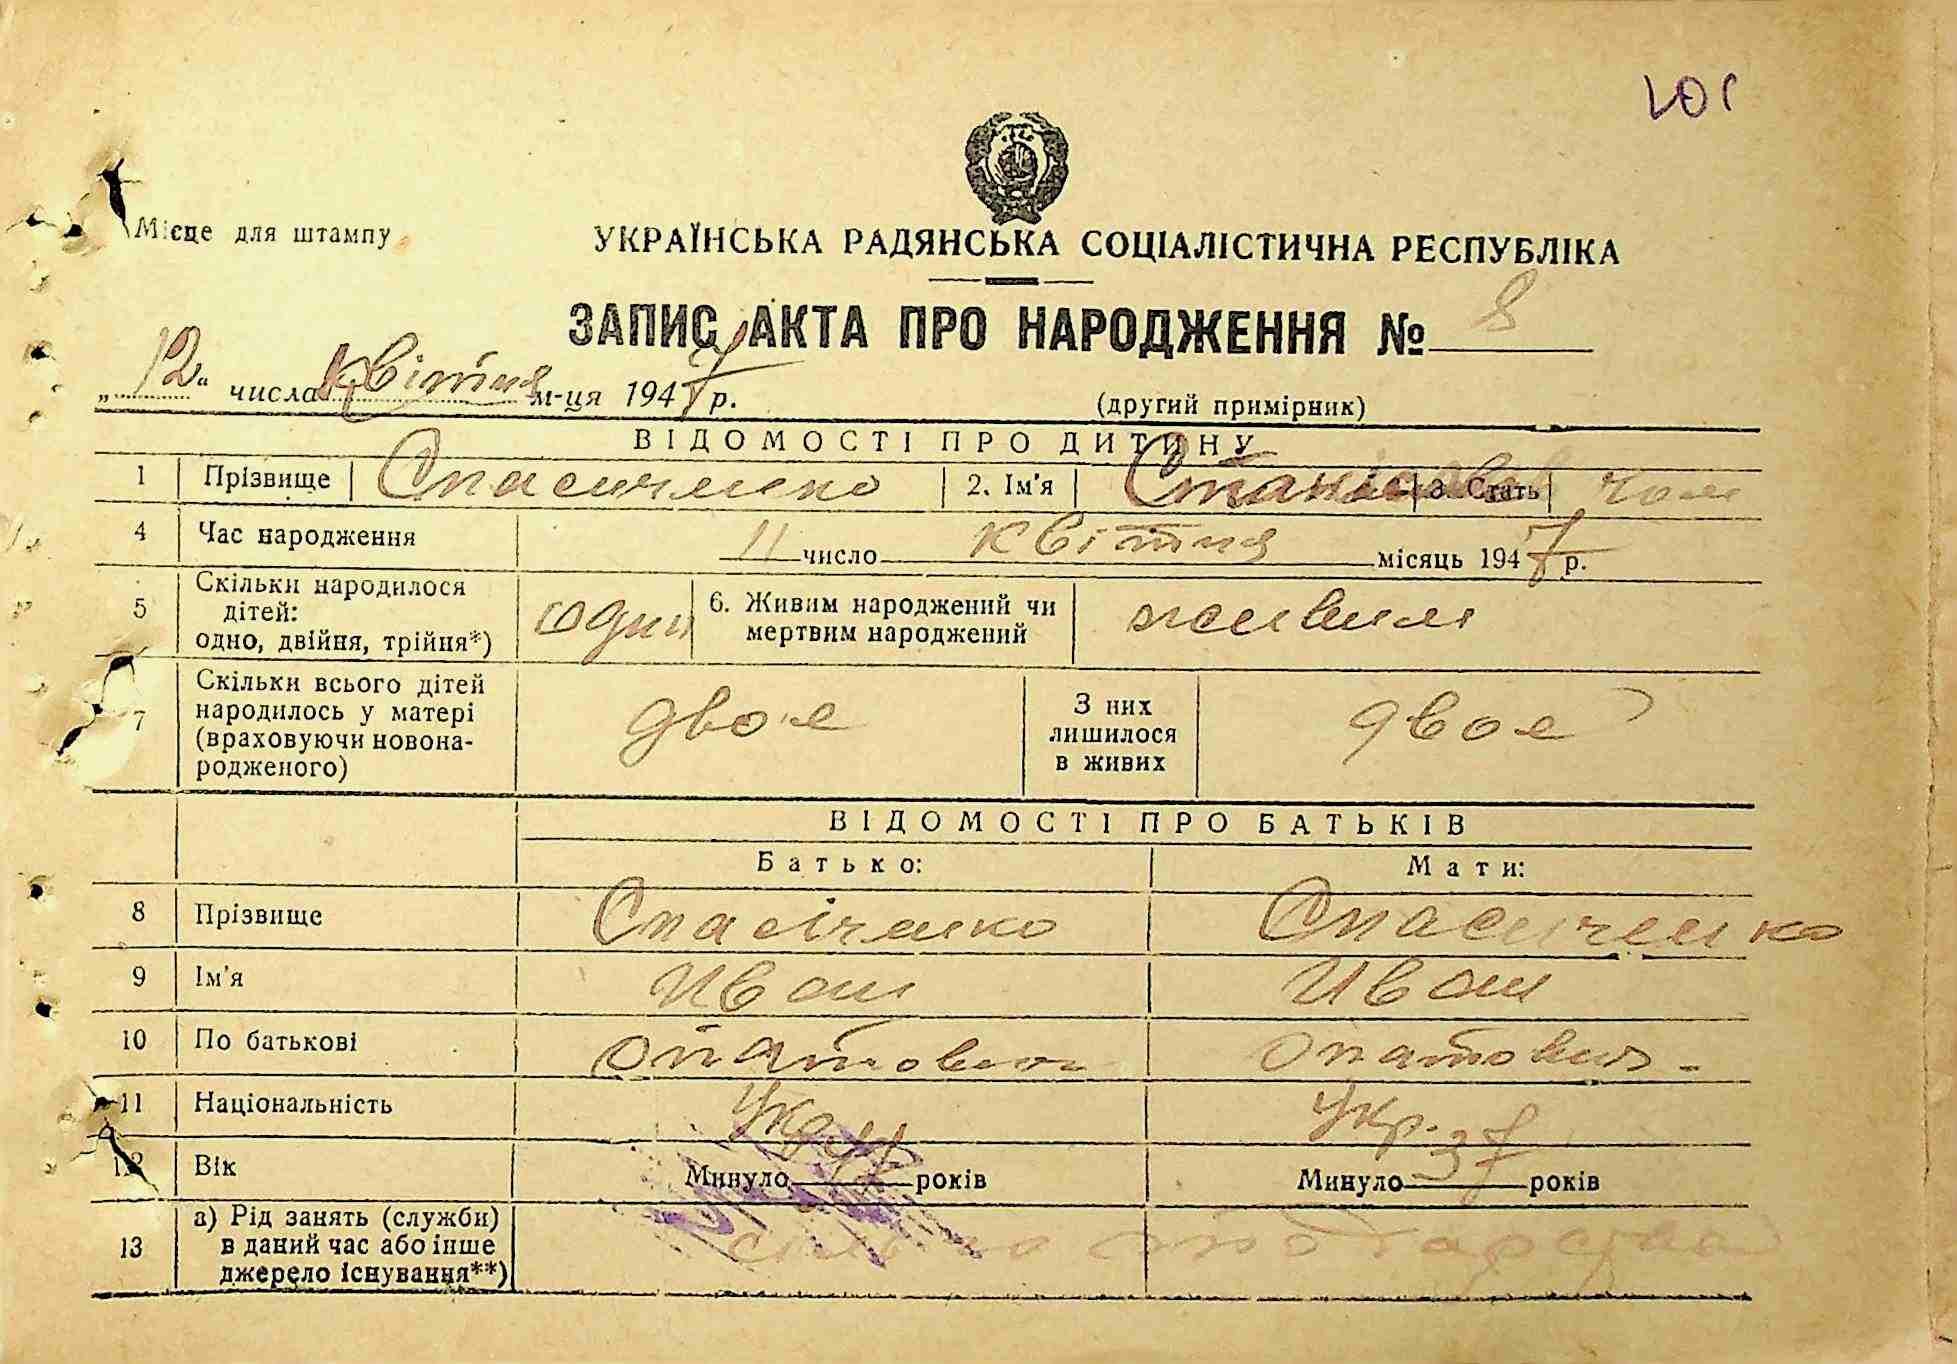 101
Місце для штампу
УКРАЇНСЬКА РАДЯНСЬКА СОЦІАЛІСТИЧНА РЕСПУБЛІКА
ЗАПИС АКТА ПРО НАРОДЖЕННЯ № 8
„12“ числа квітня м-ця 1947 р.
(другий примірник)
ВІДОМОСТІ ПРО ДИТИНУ
1 Прізвище Спасиченко 2. Ім'я Станіслав 3. Стать чол
4 Час народження 11 число квітня місяць 1947 р.
5 Скільки народилося дітей: одно, двійня, трійня*) 6. Живим народжений чи мертвим народжений живим
7 Скільки всього дітей народилось у матері (враховуючи новонародженого) двоє З них лишилося в живих двоє
ВІДОМОСТІ ПРО БАТЬКІВ
Батько: Мати:
8 Прізвище Спасіченко Спасиченко
9 Ім'я Иван Иван
10 По батькові Опатович
11 Національність Укр. Укр.
12 Вік Минуло років Минуло 37 років
13 а) Рід занять (служби) в даний час або інше джерело існування**)